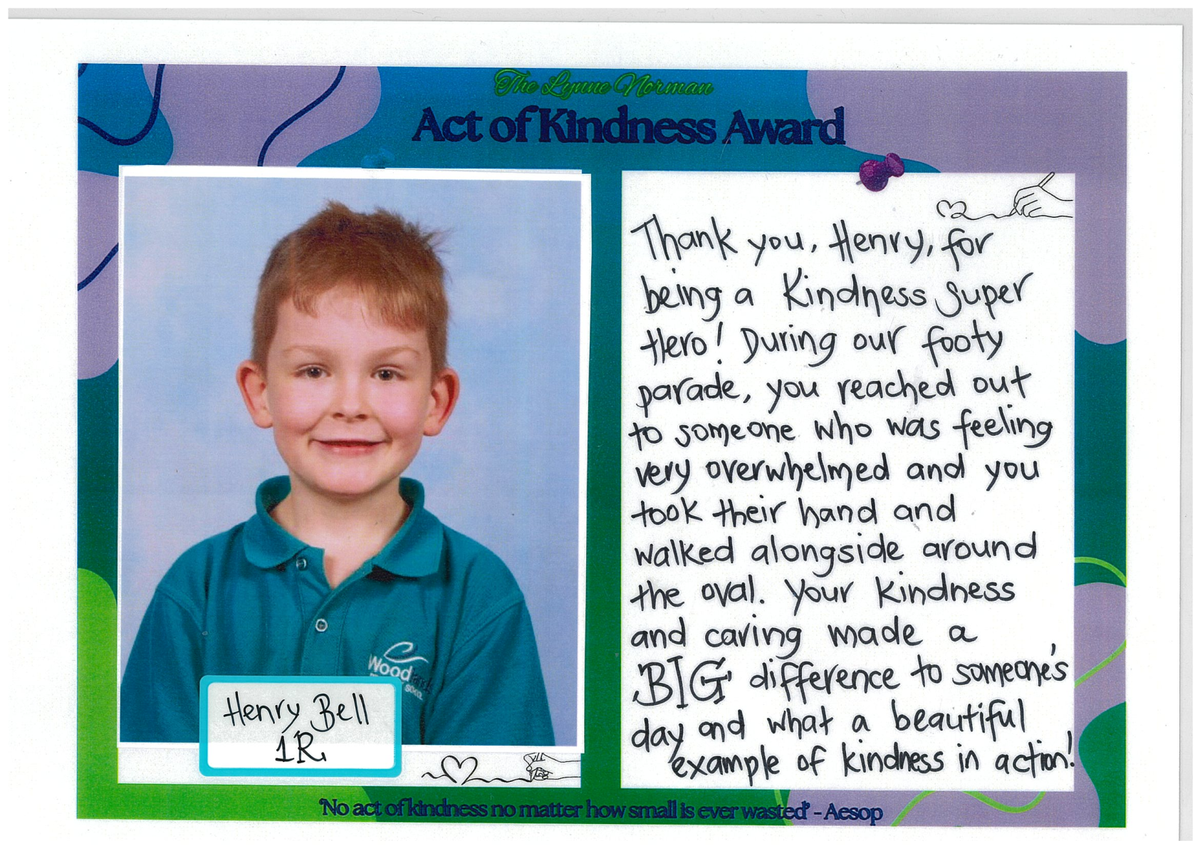 The Lynne Norman
Act of Kindness Award
Thank you, Henry, for
being a Kindness Super
Hero! During our footy
parade, you reached out
to someone who was feeling
very overwhelmed and you
took their hand and
walked alongside around
the oval. Your kindness
and caring made a
BIG difference to someone's
day and what a beautiful
example of kindness in action!
Wood
Henry Bell
1R
'No act of kindness no matter how small is ever wasted' - Aesop